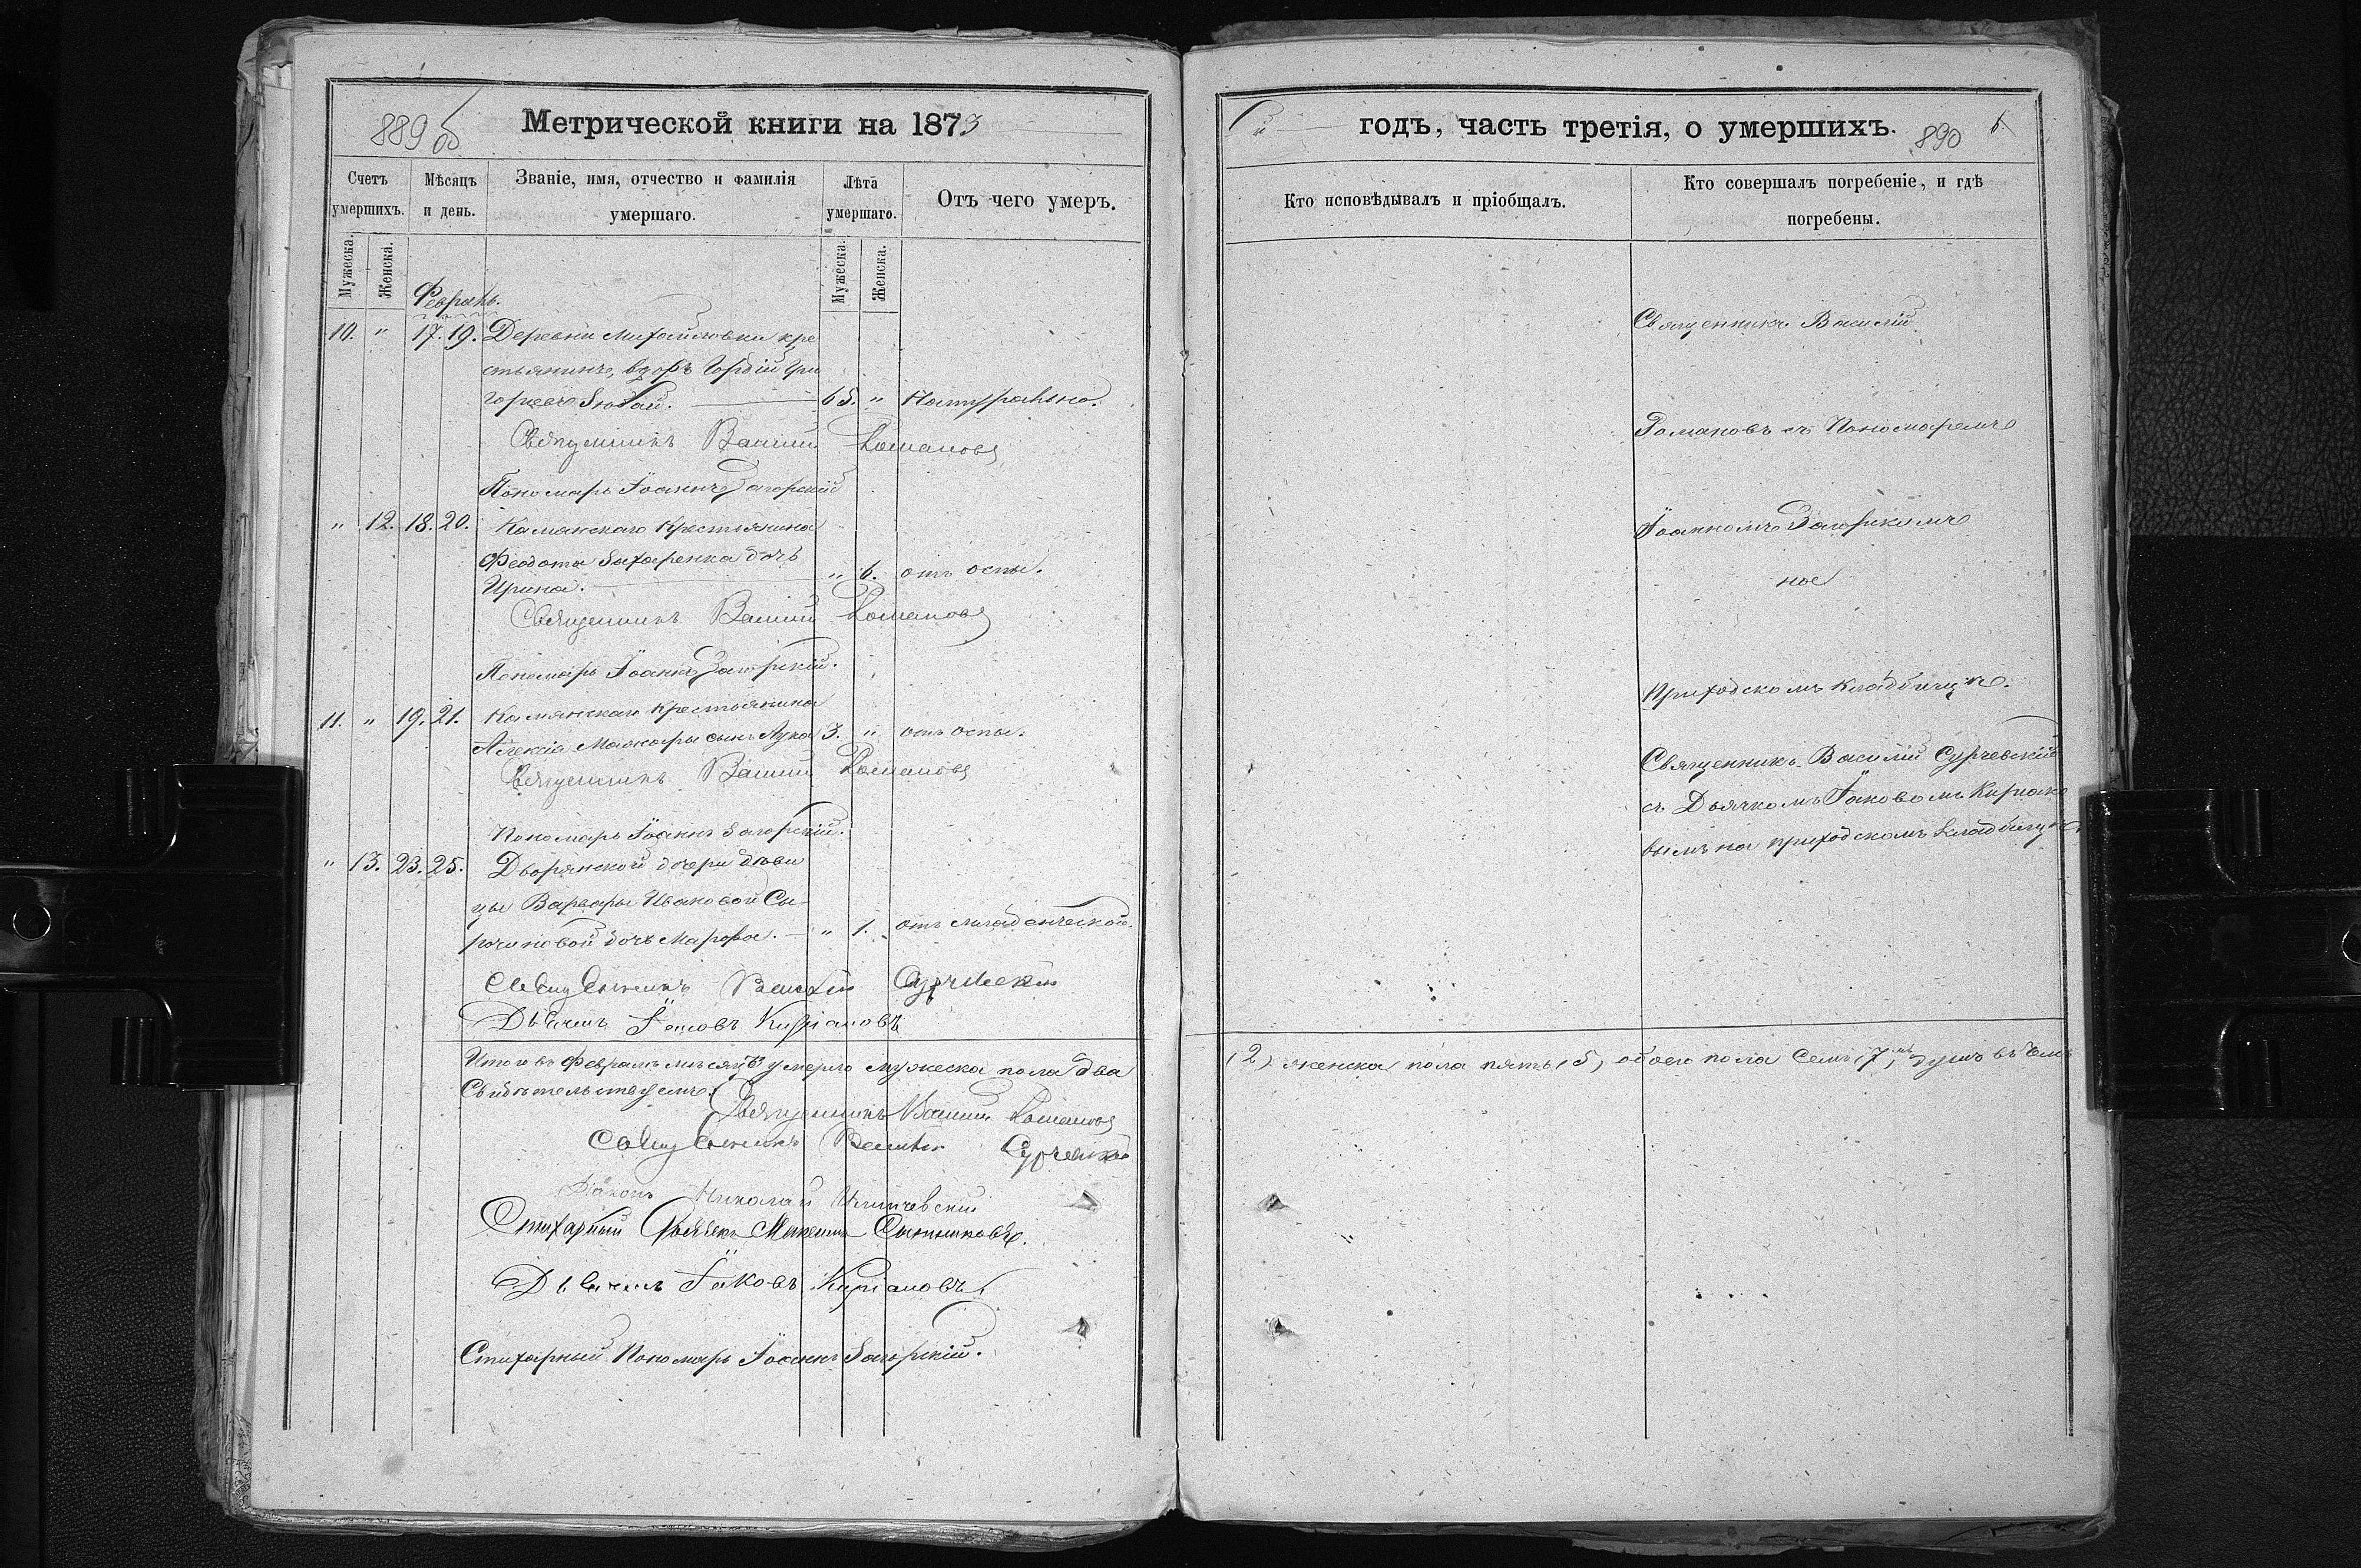 889 об
Метрической книги на 1873
Счетъ умершихъ.
Мѣсяцъ и день.
Званіе, имя, отчество и фамилія умершаго.
Лѣта умершаго.
Отъ чего умеръ.
Мужеска.
Женска.
Мужеска.
Женска.
Февраль.
10. " 17. 19. Деревни Михайловки кре
стьянинъ, вдовъ Гордій Гри
горьевъ 65. " Натурально.
Священникъ Василій Романовъ
Пономарь Іоаннъ Загорскій
" 12. 18. 20. Камянскаго Крестьянина
Феодота Захаренка дочь
Ирина. " 6. отъ оспы.
Священникъ Василій Романовъ
Пономарь Іоаннъ Загорскій.
11. " 19. 21. Камянскаго крестьянина
Алексія сынъ Лука 3. " отъ оспы.
Священникъ Василій Романовъ
Пономарь Іоаннъ Загорскій.
" 13. 23. 25. Дворянской дочери дѣви
цы Варвары Ивановой Сы
ротиновой дочь Марфа. " 1. отъ младенческой.
Священникъ Василій Сурчевскій
Дьячекъ Іаковъ Киріаковъ
Итого въ Февралѣ мѣсяцѣ умерло мужеска пола два
Свидѣтельствуемъ:
Священникъ Василій Романовъ
Священникъ Василій Сурчевскій
Діаконъ Николай
Стихарный Дьячекъ Максимъ Сытниковъ.
Дьячекъ Іаковъ Киріаковъ
Стихарный Пономарь Іоаннъ Загорскій.
й годъ, часть третія, о умершихъ.
890
Кто исповѣдывалъ и пріобщалъ.
Кто совершалъ погребеніе, и гдѣ погребены.
Священникъ Василій
Романовъ съ Пономаремъ
Іоанномъ Загорскимъ
на
Приходскомъ кладбищѣ.
Священникъ Василій Сурчевскій
съ Дьячкомъ Іаковомъ Киріако
вымъ на приходскомъ кладбищѣ.
(2) женска пола пять (5) обоего пола семь (7) душъ въ чемъ